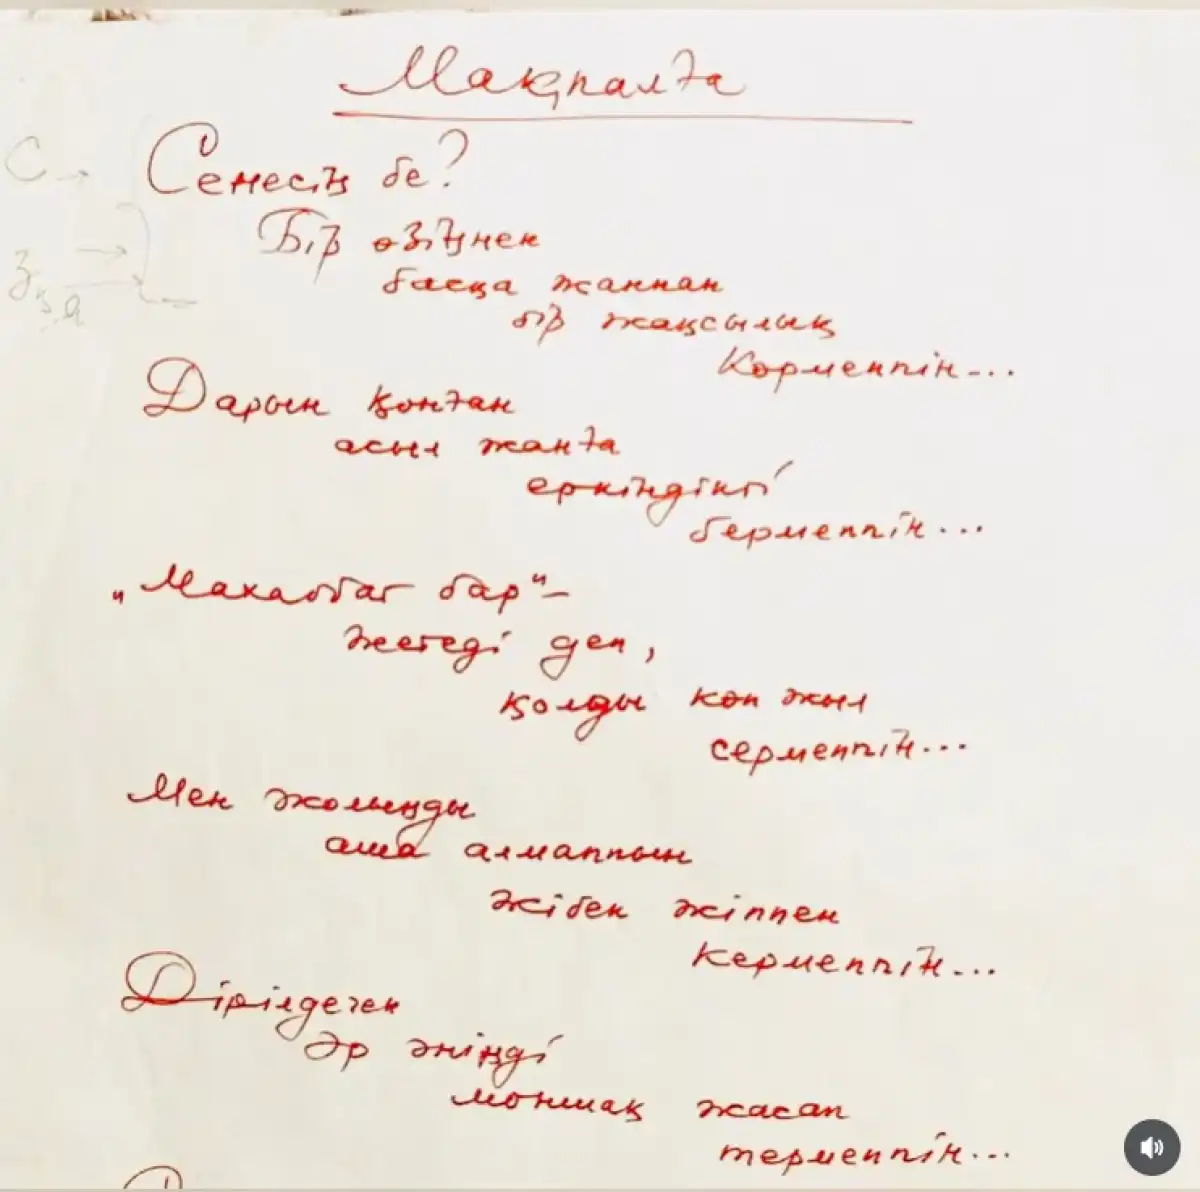 Мақпалға
Сенесің бе?
Бір өзіңнен
басқа жаннан
бір жақсылық
Көрмеппін...
Дарын қонған
асыл жанға
еркіндікті
бермеппін...
„Махаббат бар“ –
жетеді деп,
қолды көп жыл
сермеппін...
Мен жолыңды
аша алмаппын
жібек жіппен
кермеппін...
Дірілдеген
әр әніңді
моншақ жасап
термеппін...